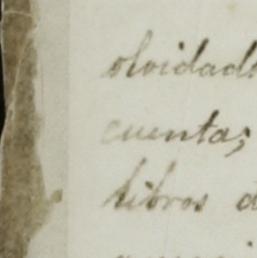 olvidado
cuentas,
libros d